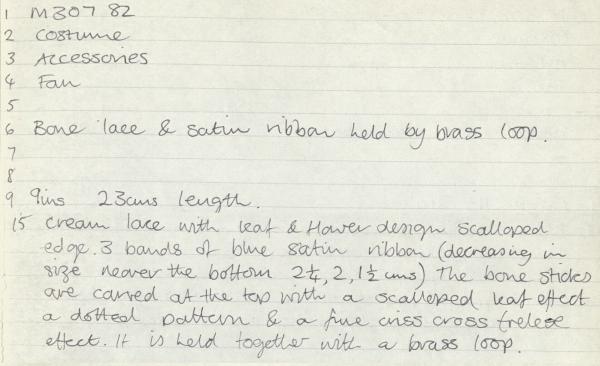 1 M307 82
2 Costume
3 Accessories
4 Fan
5
6 Bone lace & satin ribbon held by brass loop.
7
8
9 9ins 23cms length.
15 cream lace with leaf & flower design scalloped
edge. 3 bands of blue satin ribbon (decreasing in
size nearer the bottom 2¼, 2, 1½ cms) The bone sticks
are carved at the top with a scalloped leaf effect
a dotted pattern & a fine criss cross trelese
effect. It is held together with a brass loop.